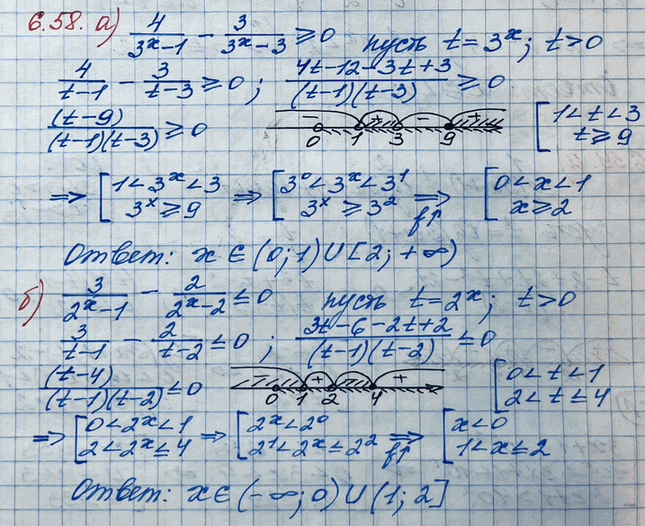 6.58. а) 4/(3^x-1) - 3/(3^x-3) ≥ 0 пусть t=3^x; t>0
4/(t-1) - 3/(t-3) ≥ 0; (4t-12-3t+3)/((t-1)(t-3)) ≥ 0
(t-9)/((t-1)(t-3)) ≥ 0 - + - + 0 1 3 9 [1<t<3 t≥9
⇒ [1<3^x<3 3^x≥9 ⇒ [3^0<3^x<3^1 3^x≥3^2 ⇒ f↑ [0<x<1 x≥2
Ответ: x∈(0;1)∪[2;+∞)
б) 3/(2^x-1) - 2/(2^x-2) ≤ 0 пусть t=2^x; t>0
3/(t-1) - 2/(t-2) ≤ 0; (3t-6-2t+2)/((t-1)(t-2)) ≤ 0
(t-4)/((t-1)(t-2)) ≤ 0 - + - + 0 1 2 4 [0<t<1 2<t≤4
⇒ [0<2^x<1 2<2^x≤4 ⇒ [2^x<2^0 2^1<2^x≤2^2 ⇒ f↑ [x<0 1<x≤2
Ответ: x∈(-∞;0)∪(1;2]